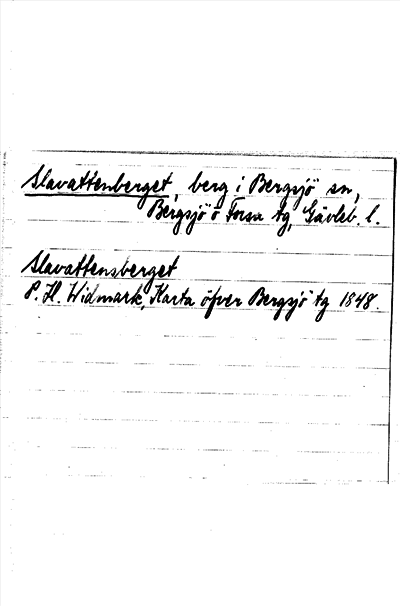 Slavattenberget, berg i Bergsjö sn,
Bergsjö o Forsa tg, Gävleb. l.
Slavattensberget
P. H. Widmark, Karta öfver Bergsjö tg 1848.